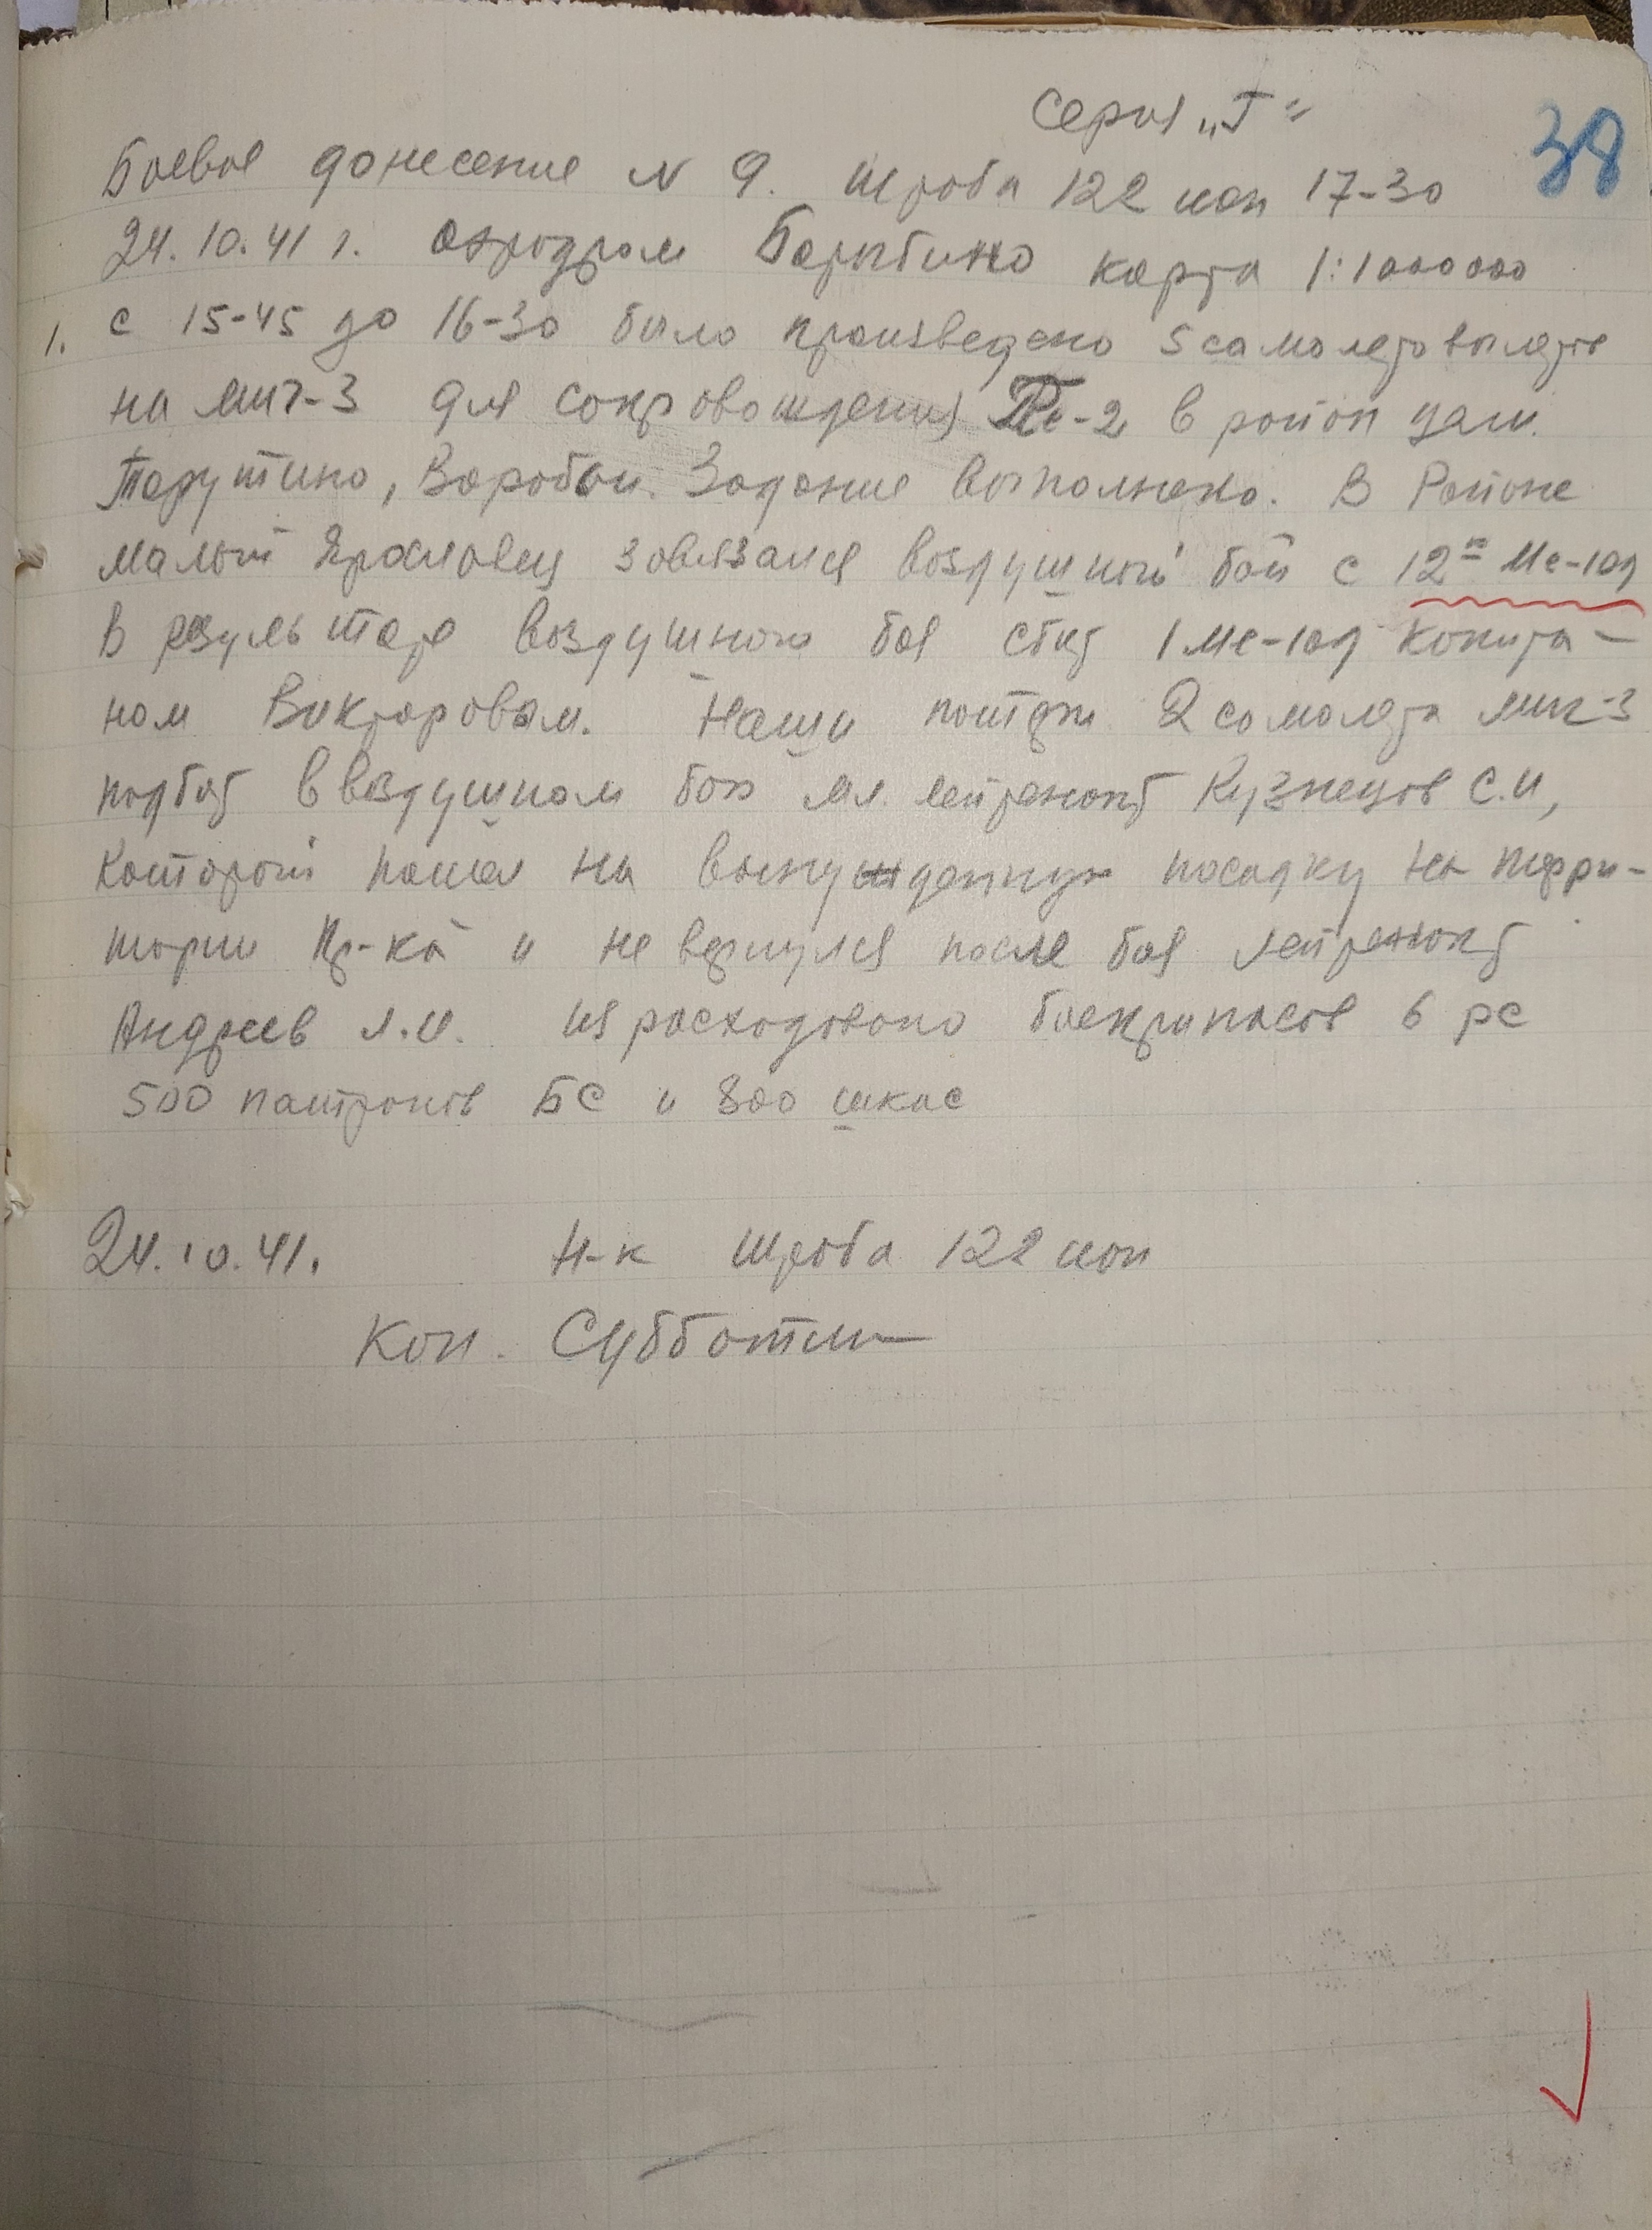 Серия „Г"
38
Боевое донесение N 9. штаба 122 иап 17-30
24.10.41 г. аэродром Барыбино карта 1:1000000
1. с 15-45 до 16-30 было произведено 5 самолетовылетов
на миг-3 для сопровождения Пе-2 в район цели
Тарутино, Воробьи. Задание выполнено. В Районе
Малый Ярославец завязался воздушный бой с 12ю Ме-109
В результате воздушного боя сбит 1 Ме-109 капита-
ном Викторовым. Наши потери 2 самолета миг-3
подбит в воздушном бою мл. лейтенант Кузнецов С.И,
Который пошел на вынужденную посадку на терри-
тории Пр-ка и не вернулся после боя лейтенант
Андреев Л.И. израсходовано боеприпасов 6 рс
500 патронов БС и 800 шкас
24.10.41. Н-к штаба 122 иап
Кап. Субботин